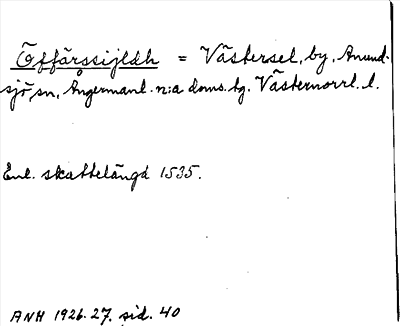 Öffärssijldh = Västersel, by, Anund-
sjö sn, Ångermanl. n:a doms. tg. Västernorrl. l.
Enl. skattelängd 1535.
ANH 1926-27. sid. 40